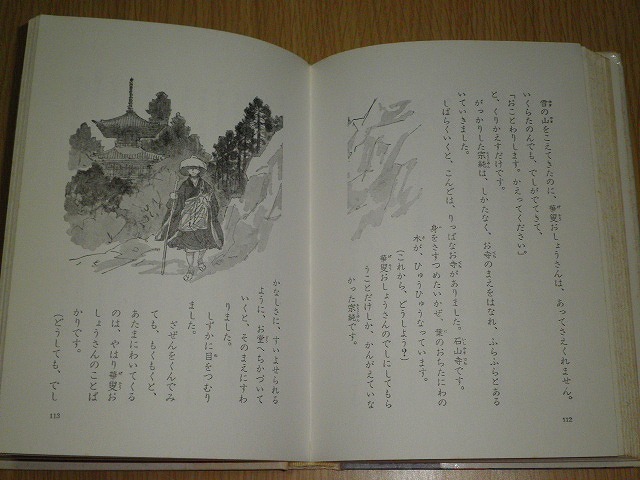 雪の山をこえてきたのに、華叟おしょうさんは、あってさえくれません。
いくらたのんでも、でしがでてきて、
「おことわりします。かえってください」
と、くりかえすだけです。
がっかりした宗純は、しかたなく、お寺のまえをはなれ、ふらふらとある
いていきました。
しばらくいくと、こんどは、りっぱなお寺がありました。石山寺です。
身をきさすつめたいかぜ。葉のおちたにわの
木が、ひゅうひゅうなっています。
（これから、どうしよう？）
華叟おしょうさんのでしにしてもら
うことだけしか、かんがえていな
かった宗純です。
112
かなしさに、すいよせられる
ように、お堂へちかづいて
いくと、そのまえにすわ
りました。
しずかに目をつむり
ました。
ざぜんをくんでみ
ても、もくもくと、
あたまにわいてくる
のは、やはり華叟お
しょうさんのことば
かりです。
（どうしても、でし
113